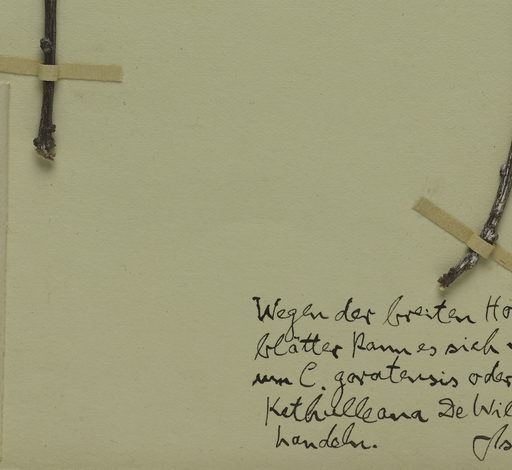 Wegen der breiten Ho
blätter kann es sich
um C. goratensis oder
Kethulleana De Wil
handeln.